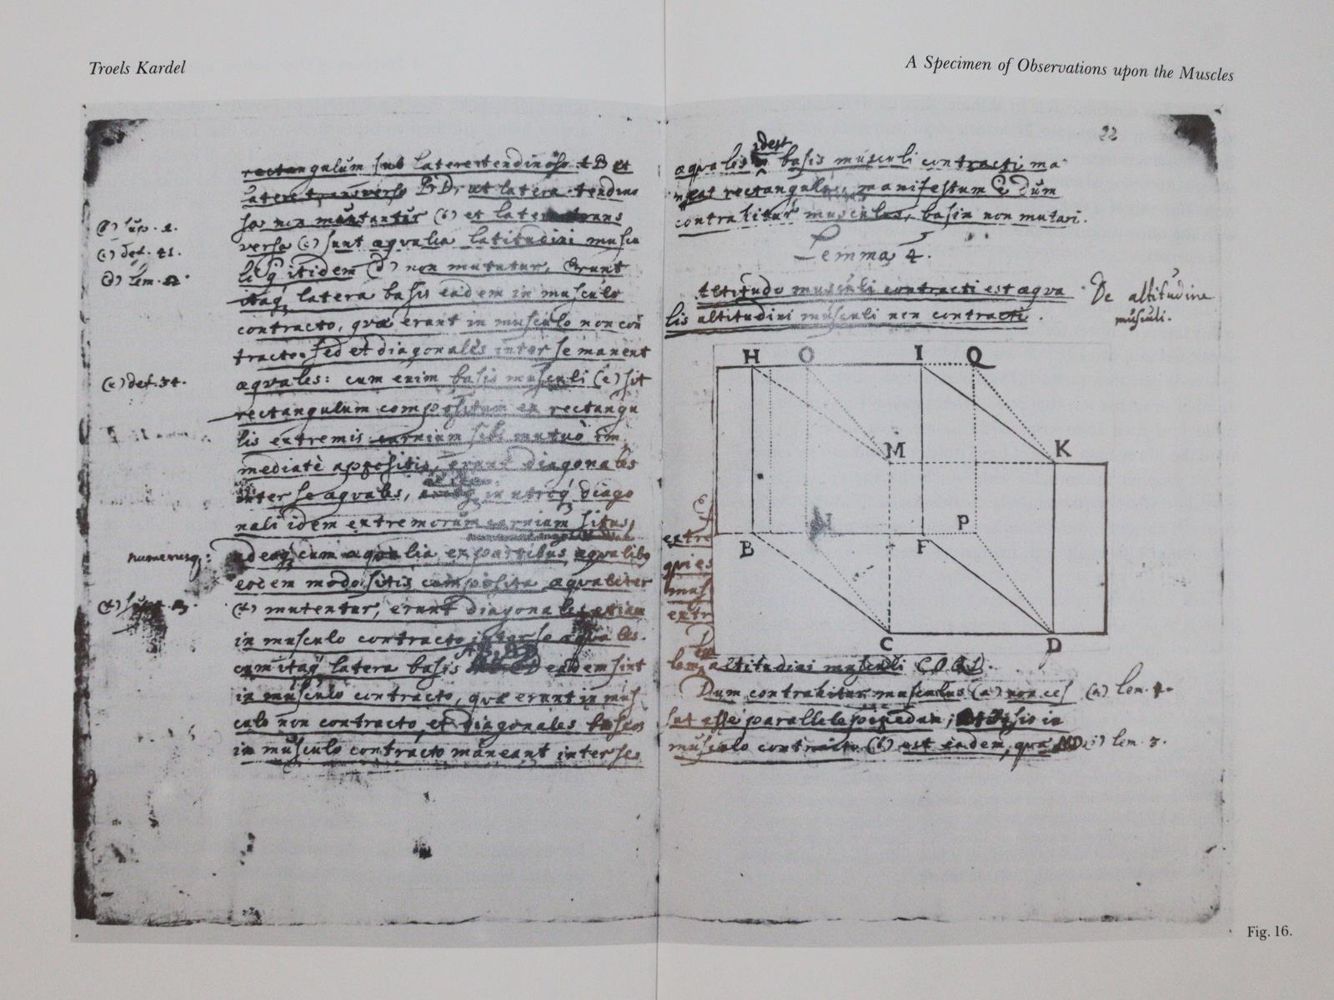 Troels Kardel
A Specimen of Observations upon the Muscles
rectangulum sub latere tendinoso AB et
latere transverso BD: ut latera tendino
sa non mutantur (b) et latera trans
versa (c) sunt æqualia latitudini muscu
li q itidem (d) non mutatur, erunt
itaq latera basis eadem in musculo
contracto, quæ erant in musculo non con
tracto. sed et diagonales inter se manent
æquales: cum enim basis musculi (e) sit
rectangulum compositum ex rectangu
lis extremis carnium sibi mutuò im
mediatè appositis, erunt diagonales
inter se æquales, in utroq diago
nali idem extremorum carnium situs,
numerusq:
adeoq cum æqualia ex partibus æqualibus
eodem modo sitis composita æqualiter
mutentur, erunt diagonales etiam
in musculo contracto inter se æquales.
cum itaq latera basis eadem sint
in musculo contracto, quæ erant in mus
culo non contracto, et diagonales baseos
in musculo contracto maneant inter se
(c) def. 41.
(e) def. 34.
22
æquales idest basis musculi contracti ma
neat rectangulum, manifestum e dum
contrahitur musculus, basin non mutari.
Lemma 4.
Altitudo musculi contracti est æqua
lis altitudini musculi non contracti.
De altitudine
musculi.
H O I Q
M K
B N F P
C D
altitudini musculi CORL.
Dum contrahitur musculus (a) non ces
(a) lem. 4.
sat esse parallelepipedum; basis in
musculo contracto (b) est eadem, quæ
lem. 3.
Fig. 16.